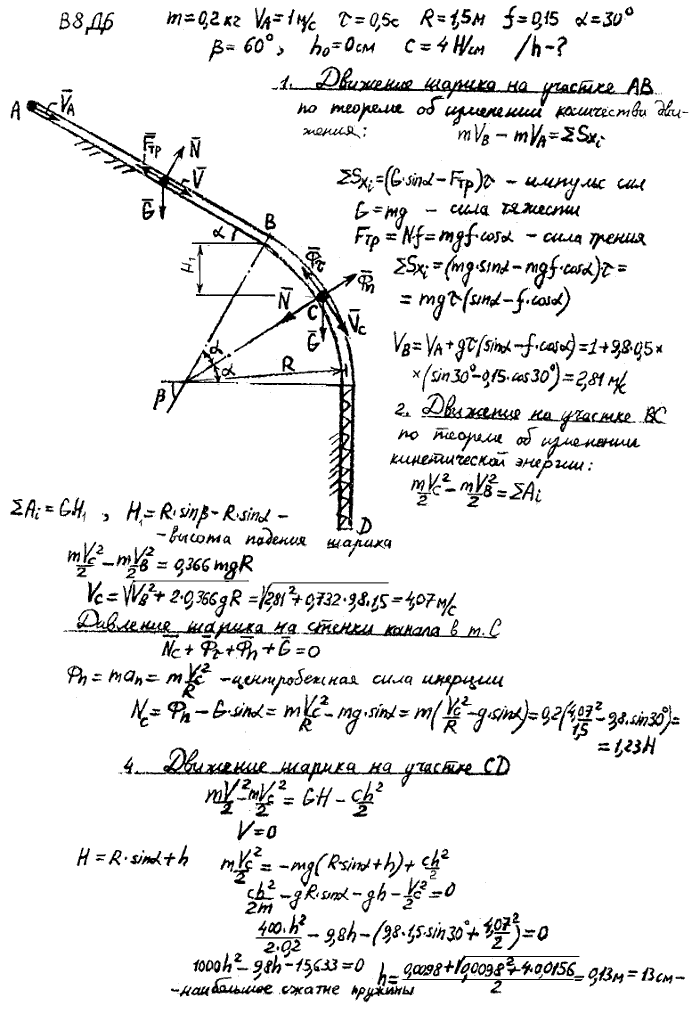 В8Д6 m=0,2кг V_A=1м/с τ=0,5с R=1,5м f=0,15 α=30°
β=60°, h₀=0см c=4 Н/см /h-?
1. Движение шарика на участке АВ
по теореме об изменении количества дви-
жения: mV_B - mV_A = ΣSxi
A V̄_A
F̄тр N̄ V̄ Ḡ
ΣSxi=(G·sinα-Fтр)τ - импульс сил
G=mg - сила тяжести
Fтр=N·f=mgf·cosα - сила трения
ΣSxi=(mg·sinα-mgf·cosα)τ=
=mgτ(sinα-f·cosα)
B α H₁ Φ̄τ Φ̄n
N̄ C V̄c Ḡ
α α R β
V_B=V_A+gτ(sinα-f·cosα)=1+9,8·0,5×
×(sin30°-0,15·cos30°)=2,81 м/с
2. Движение на участке ВС
по теореме об изменении
кинетической энергии:
mVc²/2 - mV_B²/2 = ΣAi
D
ΣAi=GH₁, H₁=R·sinβ-R·sinα-
-высота падения шарика
mVc²/2 - mV_B²/2 = 0,366mgR
Vc=√(V_B²+2·0,366gR)=√(2,81²+0,732·9,8·1,5)=4,07м/с
Давление шарика на стенки канала в т.С
N̄c+Φ̄τ+Φ̄n+Ḡ=0
Φn=man=mVc²/R -центробежная сила инерции
Nc=Φn-G·sinα=mVc²/R-mg·sinα=m(Vc²/R-g·sinα)=0,2(4,07²/1,5-9,8·sin30°)=
=1,23Н
4. Движение шарика на участке CD
mV²/2-mVc²/2=GH-ch²/2
V=0
H=R·sinα+h mVc²/2=-mg(R·sinα+h)+ch²/2
ch²/2m-gR·sinα-gh-Vc²/2=0
400·h²/2·0,2-9,8h-(9,8·1,5·sin30°+4,07²/2)=0
1000h²-9,8h-15,633=0 h=(0,0098+√(0,0098²+4·0,0156))/2=0,13м=13см-
-наибольшее сжатие пружины